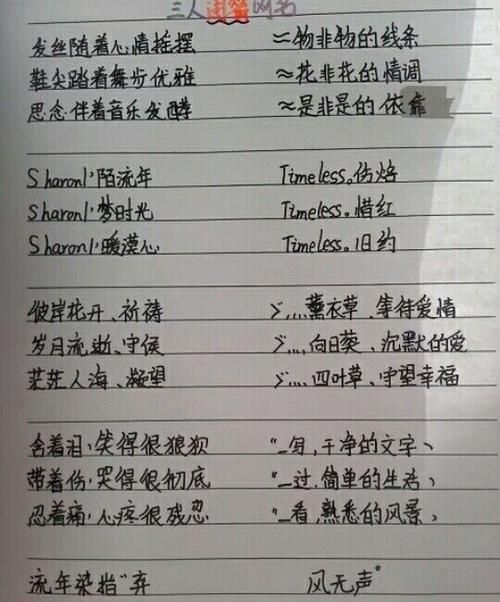 三人闺蜜网名
发丝随着心情摇摆 ≈物非物的线条
鞋尖踏着舞步优雅 ≈花非花的情调
思念伴着音乐发酵 ≈是非是的依靠
Sharonl°陌流年 Timeless。伤焰
Sharonl°梦时光 Timeless。惜红
Sharonl°暖漠心 Timeless。旧约
彼岸花开、祈祷 ゞ....薰衣草、等待爱情
岁月流逝、守侯 ゞ....向日葵、沉默的爱
茫茫人海、凝望 ゞ....四叶草、守望幸福
含着泪、笑得很狼狈 “_写,干净的文字、
带着伤、哭得很彻底 “_过,简单的生活、
忍着痛、心疼很残忍 “_看,熟悉的风景、
流年染指"弃 风无声°